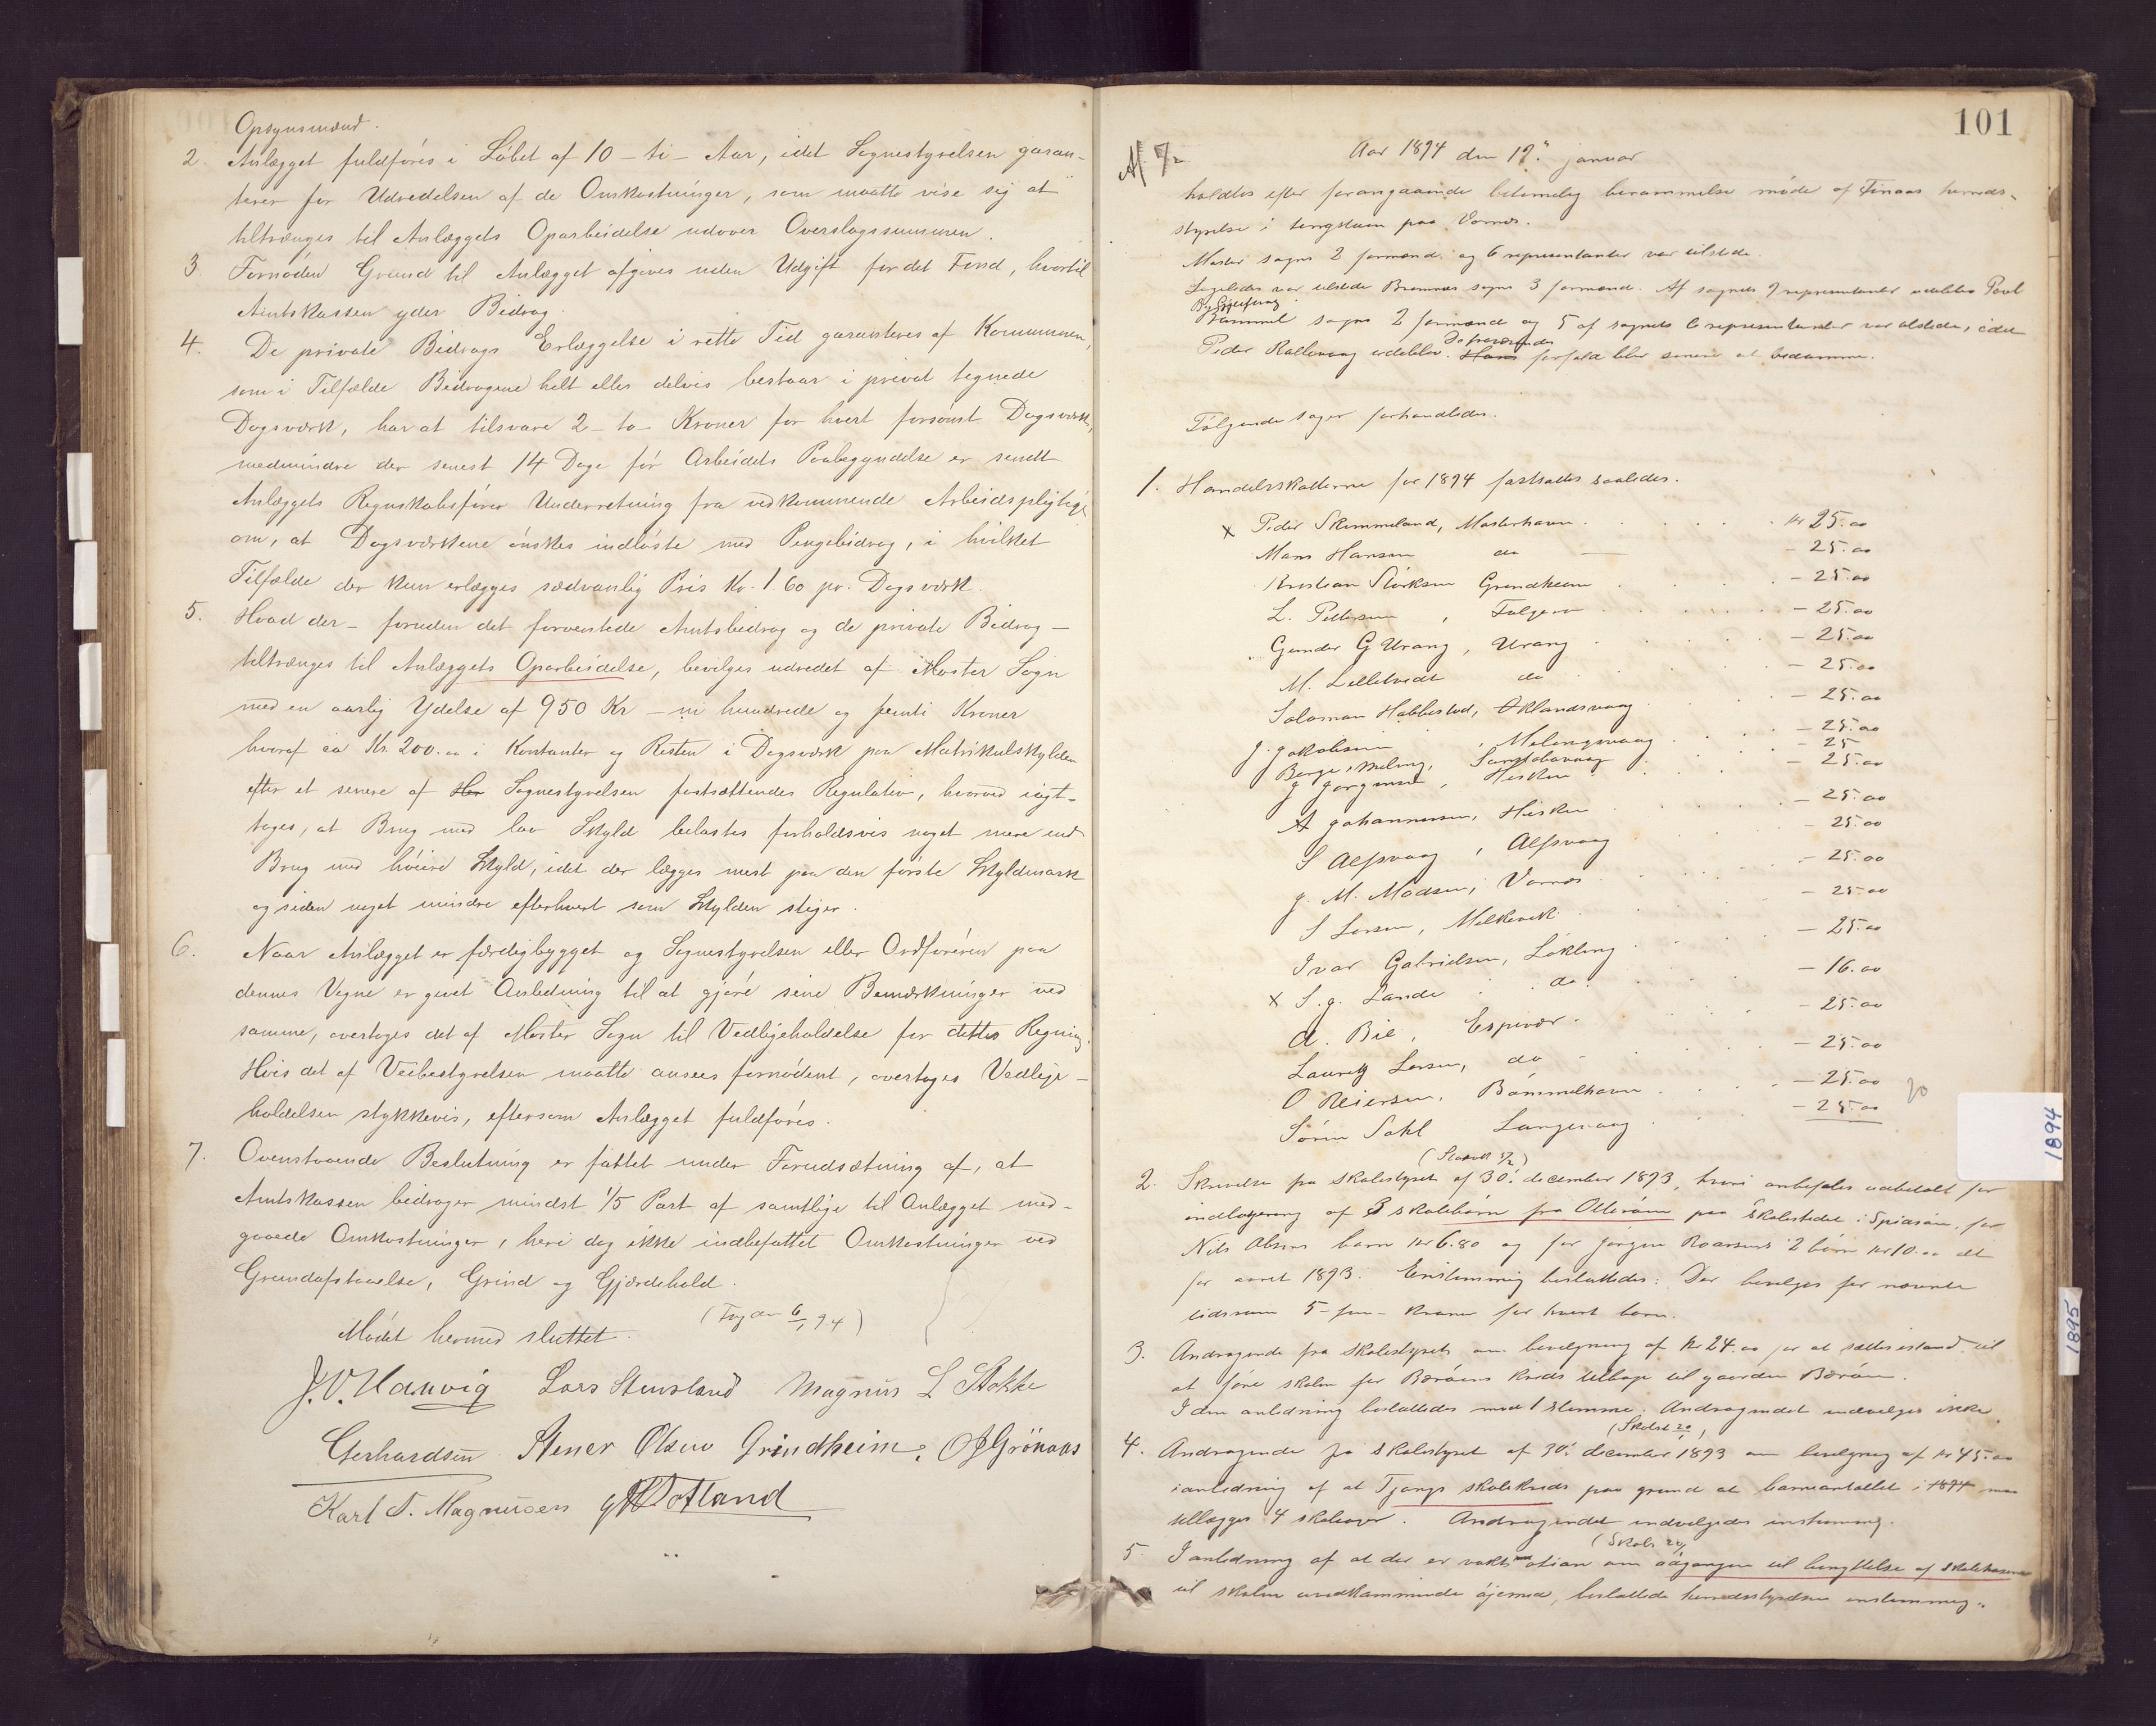 Opsynsmænd.
2. Anlægget fuldføres i Løbet af 10 - ti - Aar, idet Sognestyrelsen garan-
terer for Udredelsen af de Omkostninger, som maatte vise sig at
tiltrænges til Anlæggets Oparbeidelse udover Overslagssummen.
3. Fornøden Grund til Anlægget afgives uden Udgift for det Fond, hvortil
Amtskassen yder Bidrag.
4. De private Bidrags Erlæggelse i rette Tid garanteres af Kommunen,
som i Tilfælde Bidragene helt eller delvis bestaar i privat tegnede
Dagsværk, har at tilsvare 2 - to - Kroner for hvert forsømt Dagsværk,
medmindre der senest 14 Dage før Arbeidets Paabegyndelse er sendt
Anlæggets Regnskabsfører Underretning fra vedkommende Arbeidspligtige
om, at Dagsværkene ønskes indløste med Pengebidrag, i hvilket
Tilfælde der kun erlægges sædvanlig Pris Kr. 1.60 pr. Dagsværk.
5. Hvad der - foruden det forventede Amtsbidrag og de private Bidrag -
tiltrænges til Anlæggets Oparbeidelse, bevilges udredet af Moster Sogn
med en aarlig Ydelse af 950 Kr - ni hundrede og femti Kroner
hvoraf ca Kr. 200.00 i Kontanter og Resten i Dagsværk paa Matrikulskylden
efter et senere af Her Sognestyrelsen fastsættendes Regulativ, hvorved iagt-
tages, at Brug med lav Skyld belastes forholdsvis noget mere end
Brug med høiere Skyld, idet der lægges mest paa den første Skyldmark
og siden noget mindre efterhvert som Skylden stiger.
6. Naar Anlægget er færdigbygget og Sognestyrelsen eller Ordføreren paa
dennes Vegne er givet Anledning til at gjøre sine Bemærkninger ved
samme, overtages det af Moster Sogn til Vedligeholdelse for dettes Regning.
Hvis det af Veibestyrelsen maatte ansees fornødent, overtages Vedlige-
holdelsen stykkevis, eftersom Anlægget fuldføres.
7. Ovenstaaende Beslutning er fattet under Forudsætning af, at
Amtskassen bidrager mindst 1/5 Part af samtlige til Anlægget med-
gaaede Omkostninger, heri dog ikke indbefattet Omkostninger ved
Grundafstaaelse, Grind og Gjærdehold.
Mødet hermed sluttet. 6/1 94)
J. V. Hanvig Lars Stensland Magnus L Stokke
Gerhardsen Stener Olsen Grindheim. O J Grönaas
Karl T. Magnusen
101
Aar 1894 den 19. januar
holdtes efter forangaaende betimelig berammelse møde af Finaas herreds-
styrelse i tingstuen paa Vornes.
Moster sogns 2 formænd og 6 representanter var tilstede.
Ligeledes var tilstede Bremnes sogns 3 formænd. Af sognets 9 representanter udeblev Povl
Byggefvaag.
Bømmel sogns 2 formænd og 5 af sognets 6 representanter var tilstede, idet
Peder Rallevaag udeblev. Hans forfald blir senere at bedømme.
Følgende sager forhandledes.
1. Handelsskatterne for 1894 fastsattes saaledes.
x Peder Skimmeland, Mosterhavn. . . . . . kr 25.00
Mons Hansen do - 25.00
Kristian Størksen Grindheim - 25.00
L. Pettersen, Folgerø - 25.00
Gunder G Urang, Urang - 25.00
M. Lilletvedt do - 25.00
Salomon Habbestad, Øklandsvaag - 25.00
J. Jakobsen, Melingsvaag - 25.00
Børge Meling, - 25
J Jørgensen, Hisken - 25.00
A Johannessen, Hisken - 25.00
S Alfsvaag, Alfsvaag - 25.00
J M. Madsen, Vornes - 25.00
S Larsen, Melkevik - 25.00
Ivar Gabrielsen, Løkling - 25.00
x S. J. Lande do. - 16.00
A. Bie, Espevær. - 25.00
Lauritz Larsen, do - 25.00
O Reiersen, Bømmelhavn - 25.00
Søren Dahl Langevaag - 25.00
2. Skrivelse fra skolestyret af 30. december 1893, hvori anbefales udbetalt for
indlogering af 3 skolebørn fra Otterøen paa skolestedet i Spissøen, for
Nils Olsens barn kr 6.80 og for Jørgen Roaldsens 2 børn kr 10.00 alt
for aaret 1893. Enstemmig besluttedes: Der bevilges for nævnte
tidsrum 5 - fem - kroner for hvert barn.
3. Andragende fra skolestyret om bevilgning af kr 24.00 for at sættes istand til
at føre skolen for Børøens kreds tilbage til gaarden Børøen.
I den anledning besluttedes mod 1 stemme: Andragendet indvilges ikke.
4. Andragende fra skolestyret af 30. december 1893 om bevilgning af kr 45.00
ianledning af at Tjongs skolekreds paa grund af barneantallet i 1894 maa
tillægges 4 skoleuger. Andragendet indvilgedes enstemmig.
5. I anledning af at der er vakt motion om adgangen til benyttelse af skolehusene
til skolen uvedkommende øjemed, besluttede herredsstyrelsen enstemmig:
1894
1895